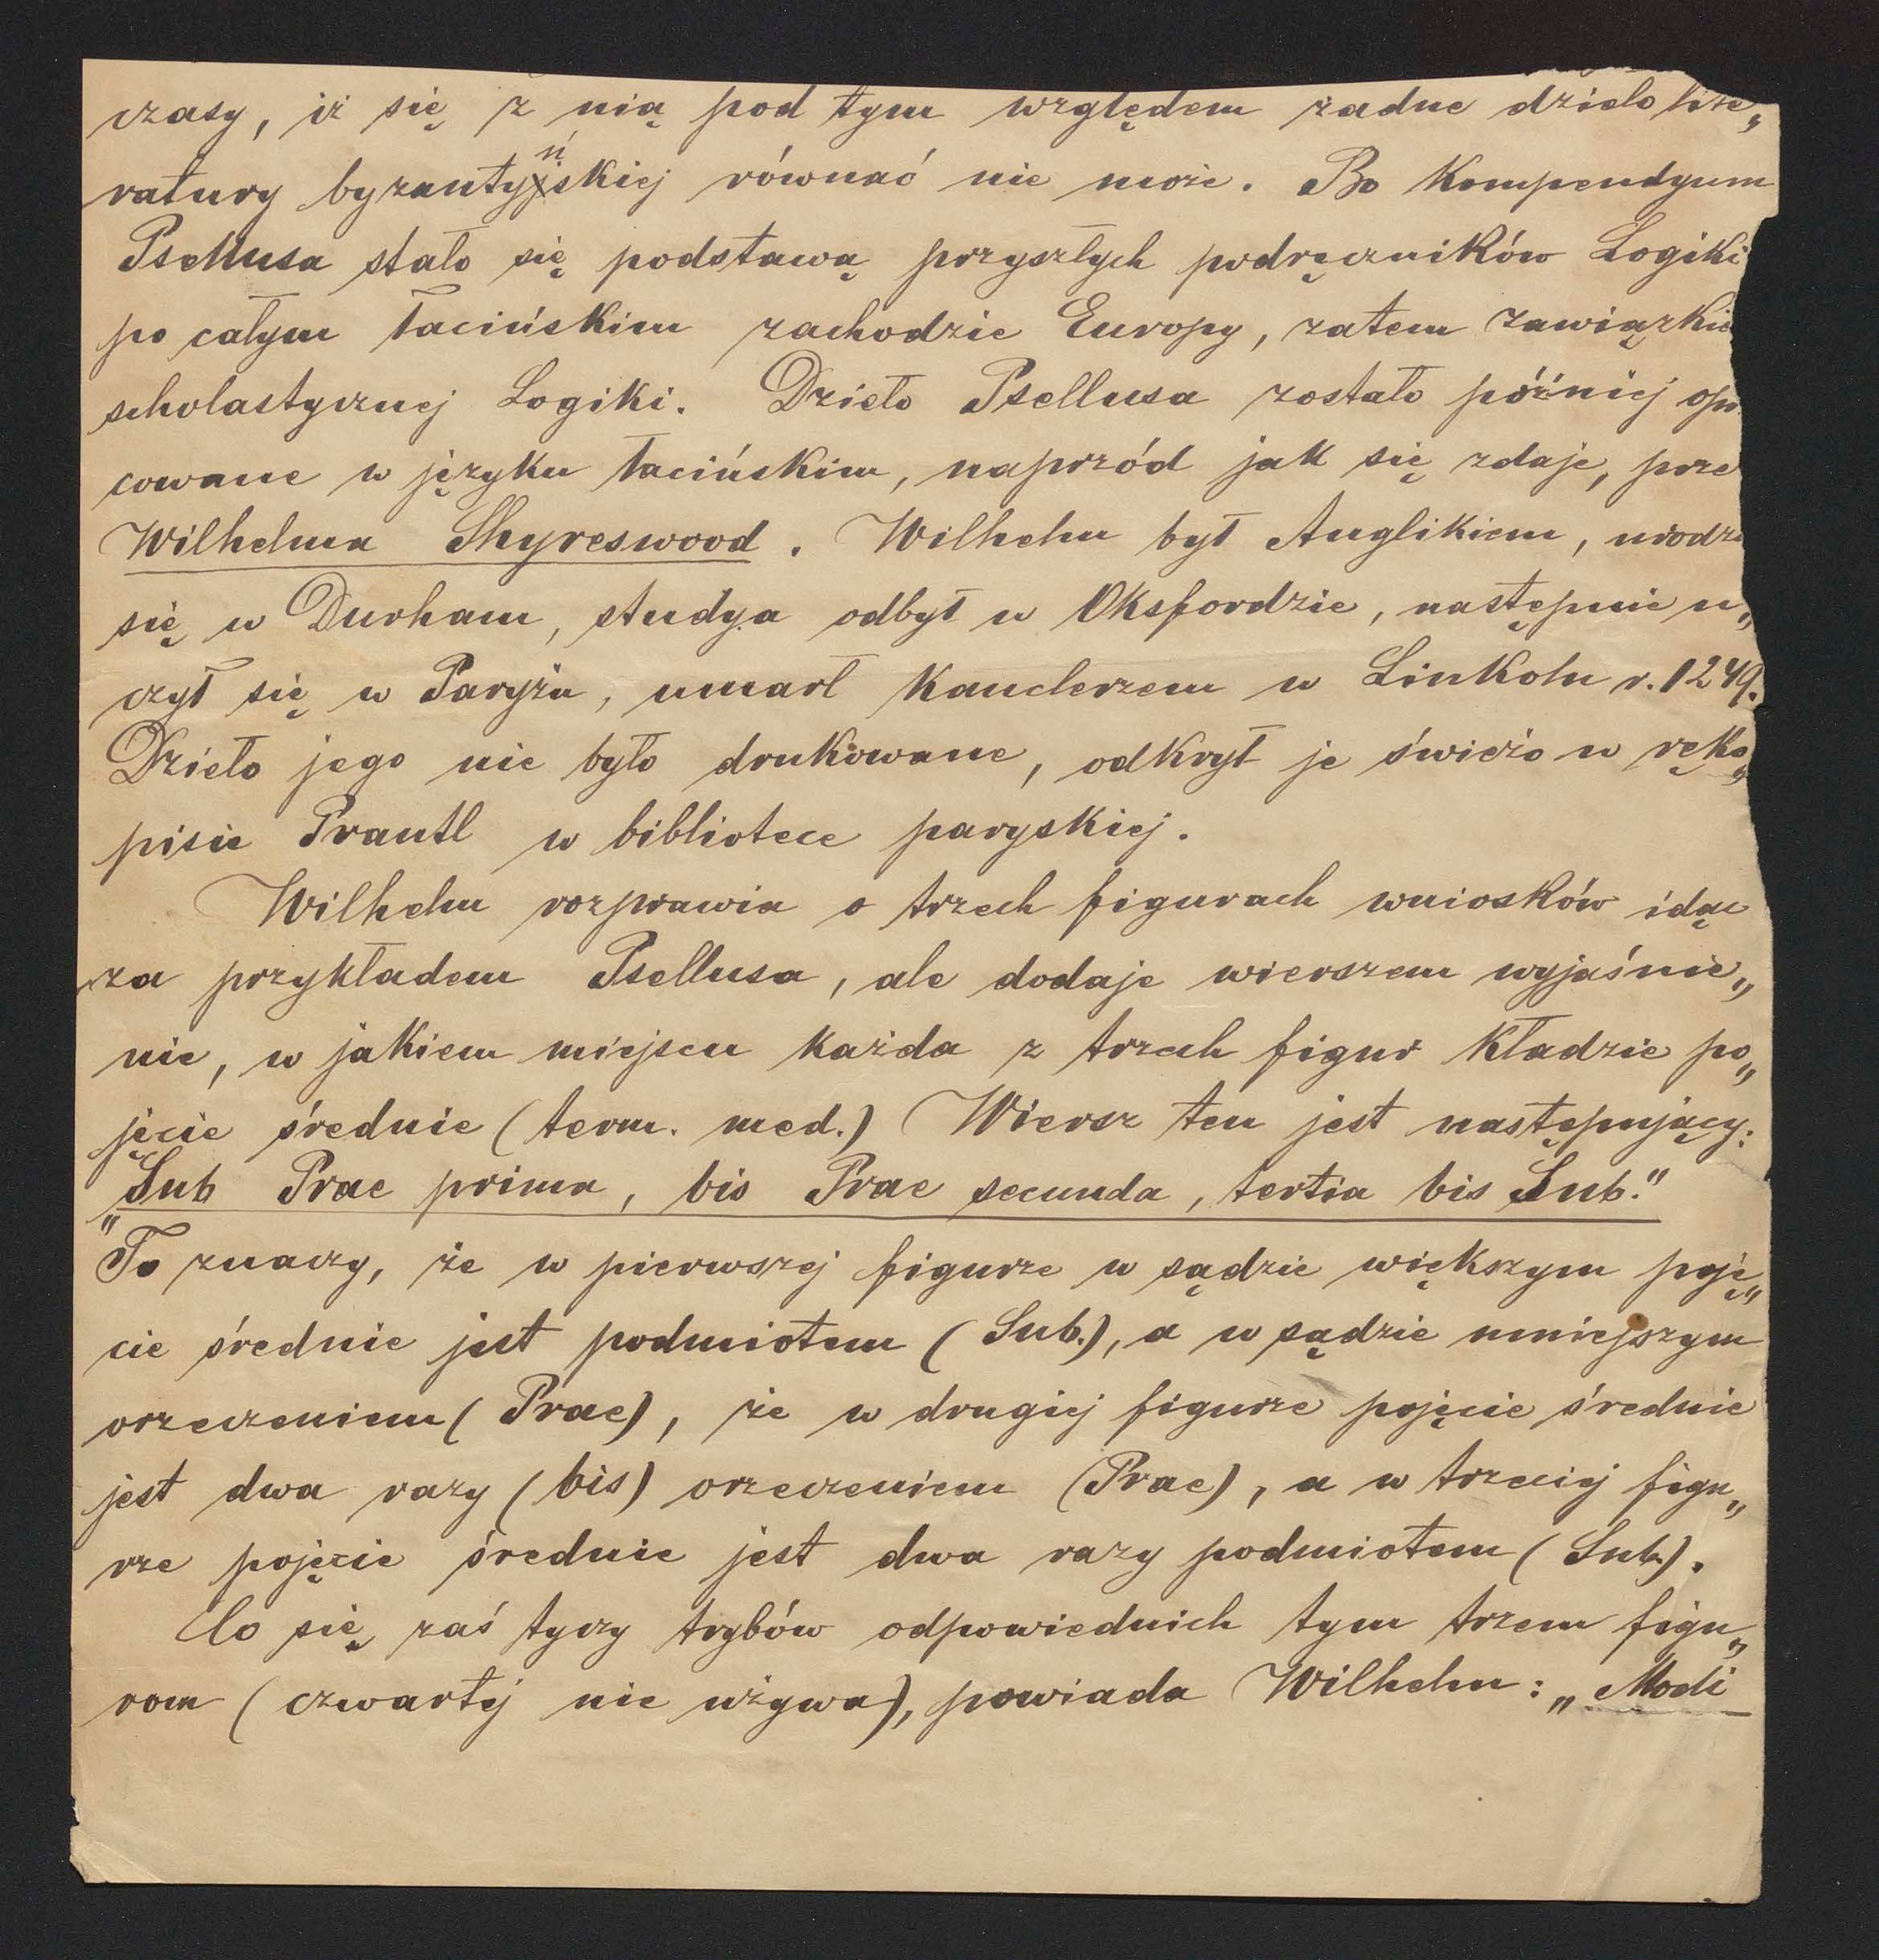 czasy, iż się z nią pod tym względem żadne dzieło lite„
ratury byzantyńskiej równać nie może. Bo Kompendyum
Psellusa stało się podstawą przyszłych podręczników Logiki
po całym łacińskim zachodzie Europy, zatem zawiązkie
scholastycznej Logiki. Dzieło Psellusa zostało później opr
cowane w języku łacińskim, naprzód jak się zdaje, prze
Wilhelma Shyreswood. Wilhelm był Anglikiem, urodz
się w Durham, studya odbył w Oksfordzie, następnie u„
czył się w Paryżu, umarł Kanclerzem w Linkoln r. 1249.
Dzieło jego nie było drukowane, odkrył je świeżo w ręko„
pisie Prantl w bibliotece paryskiej.
Wilhelm rozprawia o trzech figurach wniosków idąc
za przykładem Psellusa, ale dodaje wierszem wyjaśnie„
nie, w jakiem miejscu każda z trzech figur kładzie po„
jęcie średnie (term. med.) Wiersz ten jest następujący:
„Sub Prae prima, bis Prae secunda, tertia bis Sub."
To znaczy, że w pierwszej figurze w sądzie większym poję„
cie średnie jest podmiotem (Sub.), a w sądzie mniejszym
orzeczeniem (Prae), że w drugiej figurze pojęcie średnie
jest dwa razy (bis) orzeczeniem (Prae), a w trzeciej figu„
rze pojęcie średnie jest dwa razy podmiotem (Sub.).
Co się zaś tyczy trybów odpowiednich tym trzem figu„
rom (czwartej nie używa), powiada Wilhelm: „Modi